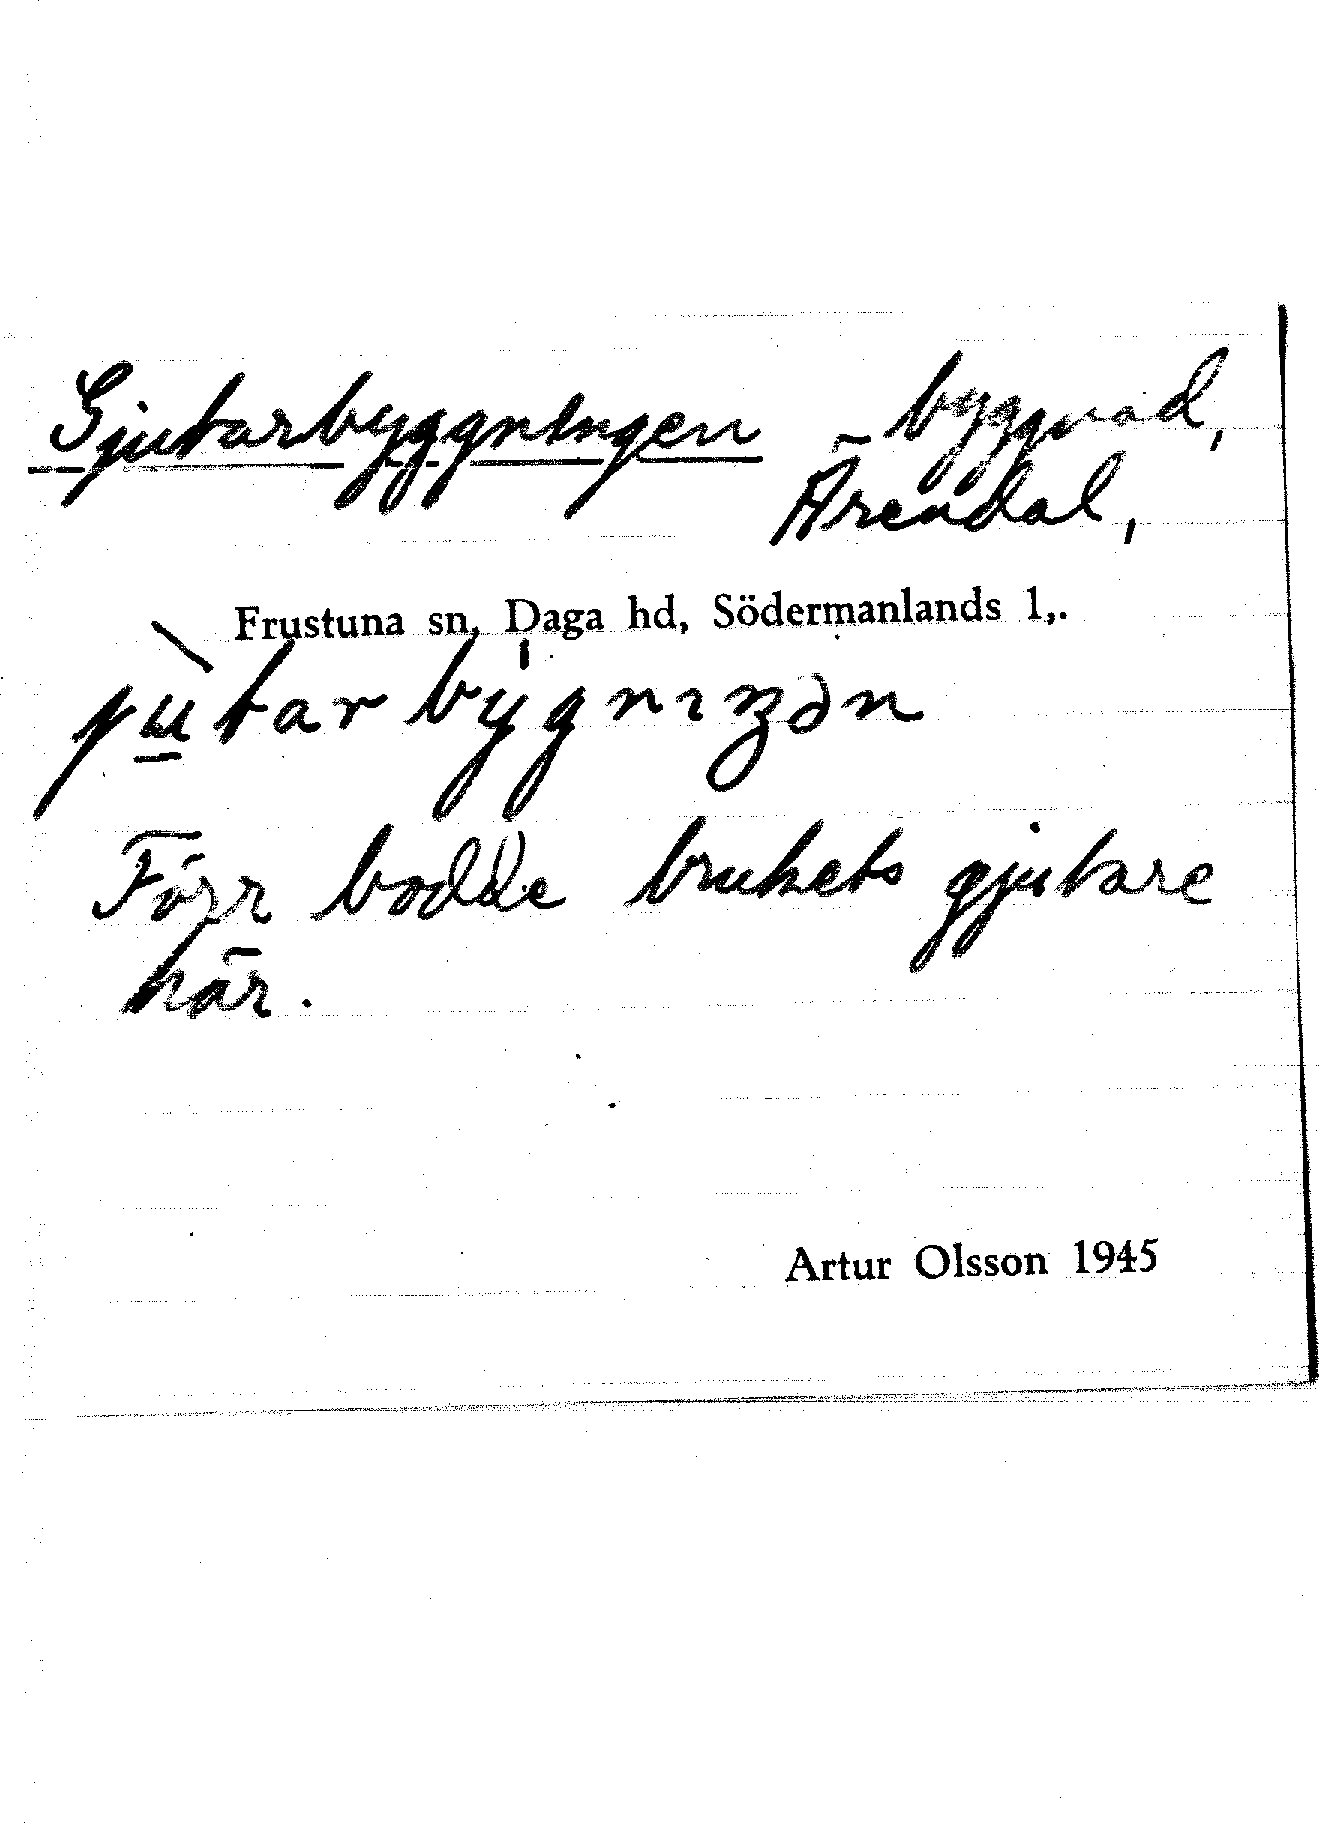 Gjutarbyggningen byggnad,
Årendal,
Frustuna sn, Daga hd, Södermanlands l,.
ju̲tarbygnıŋən
Förr bodde brukets gjutare
här.
Artur Olsson 1945